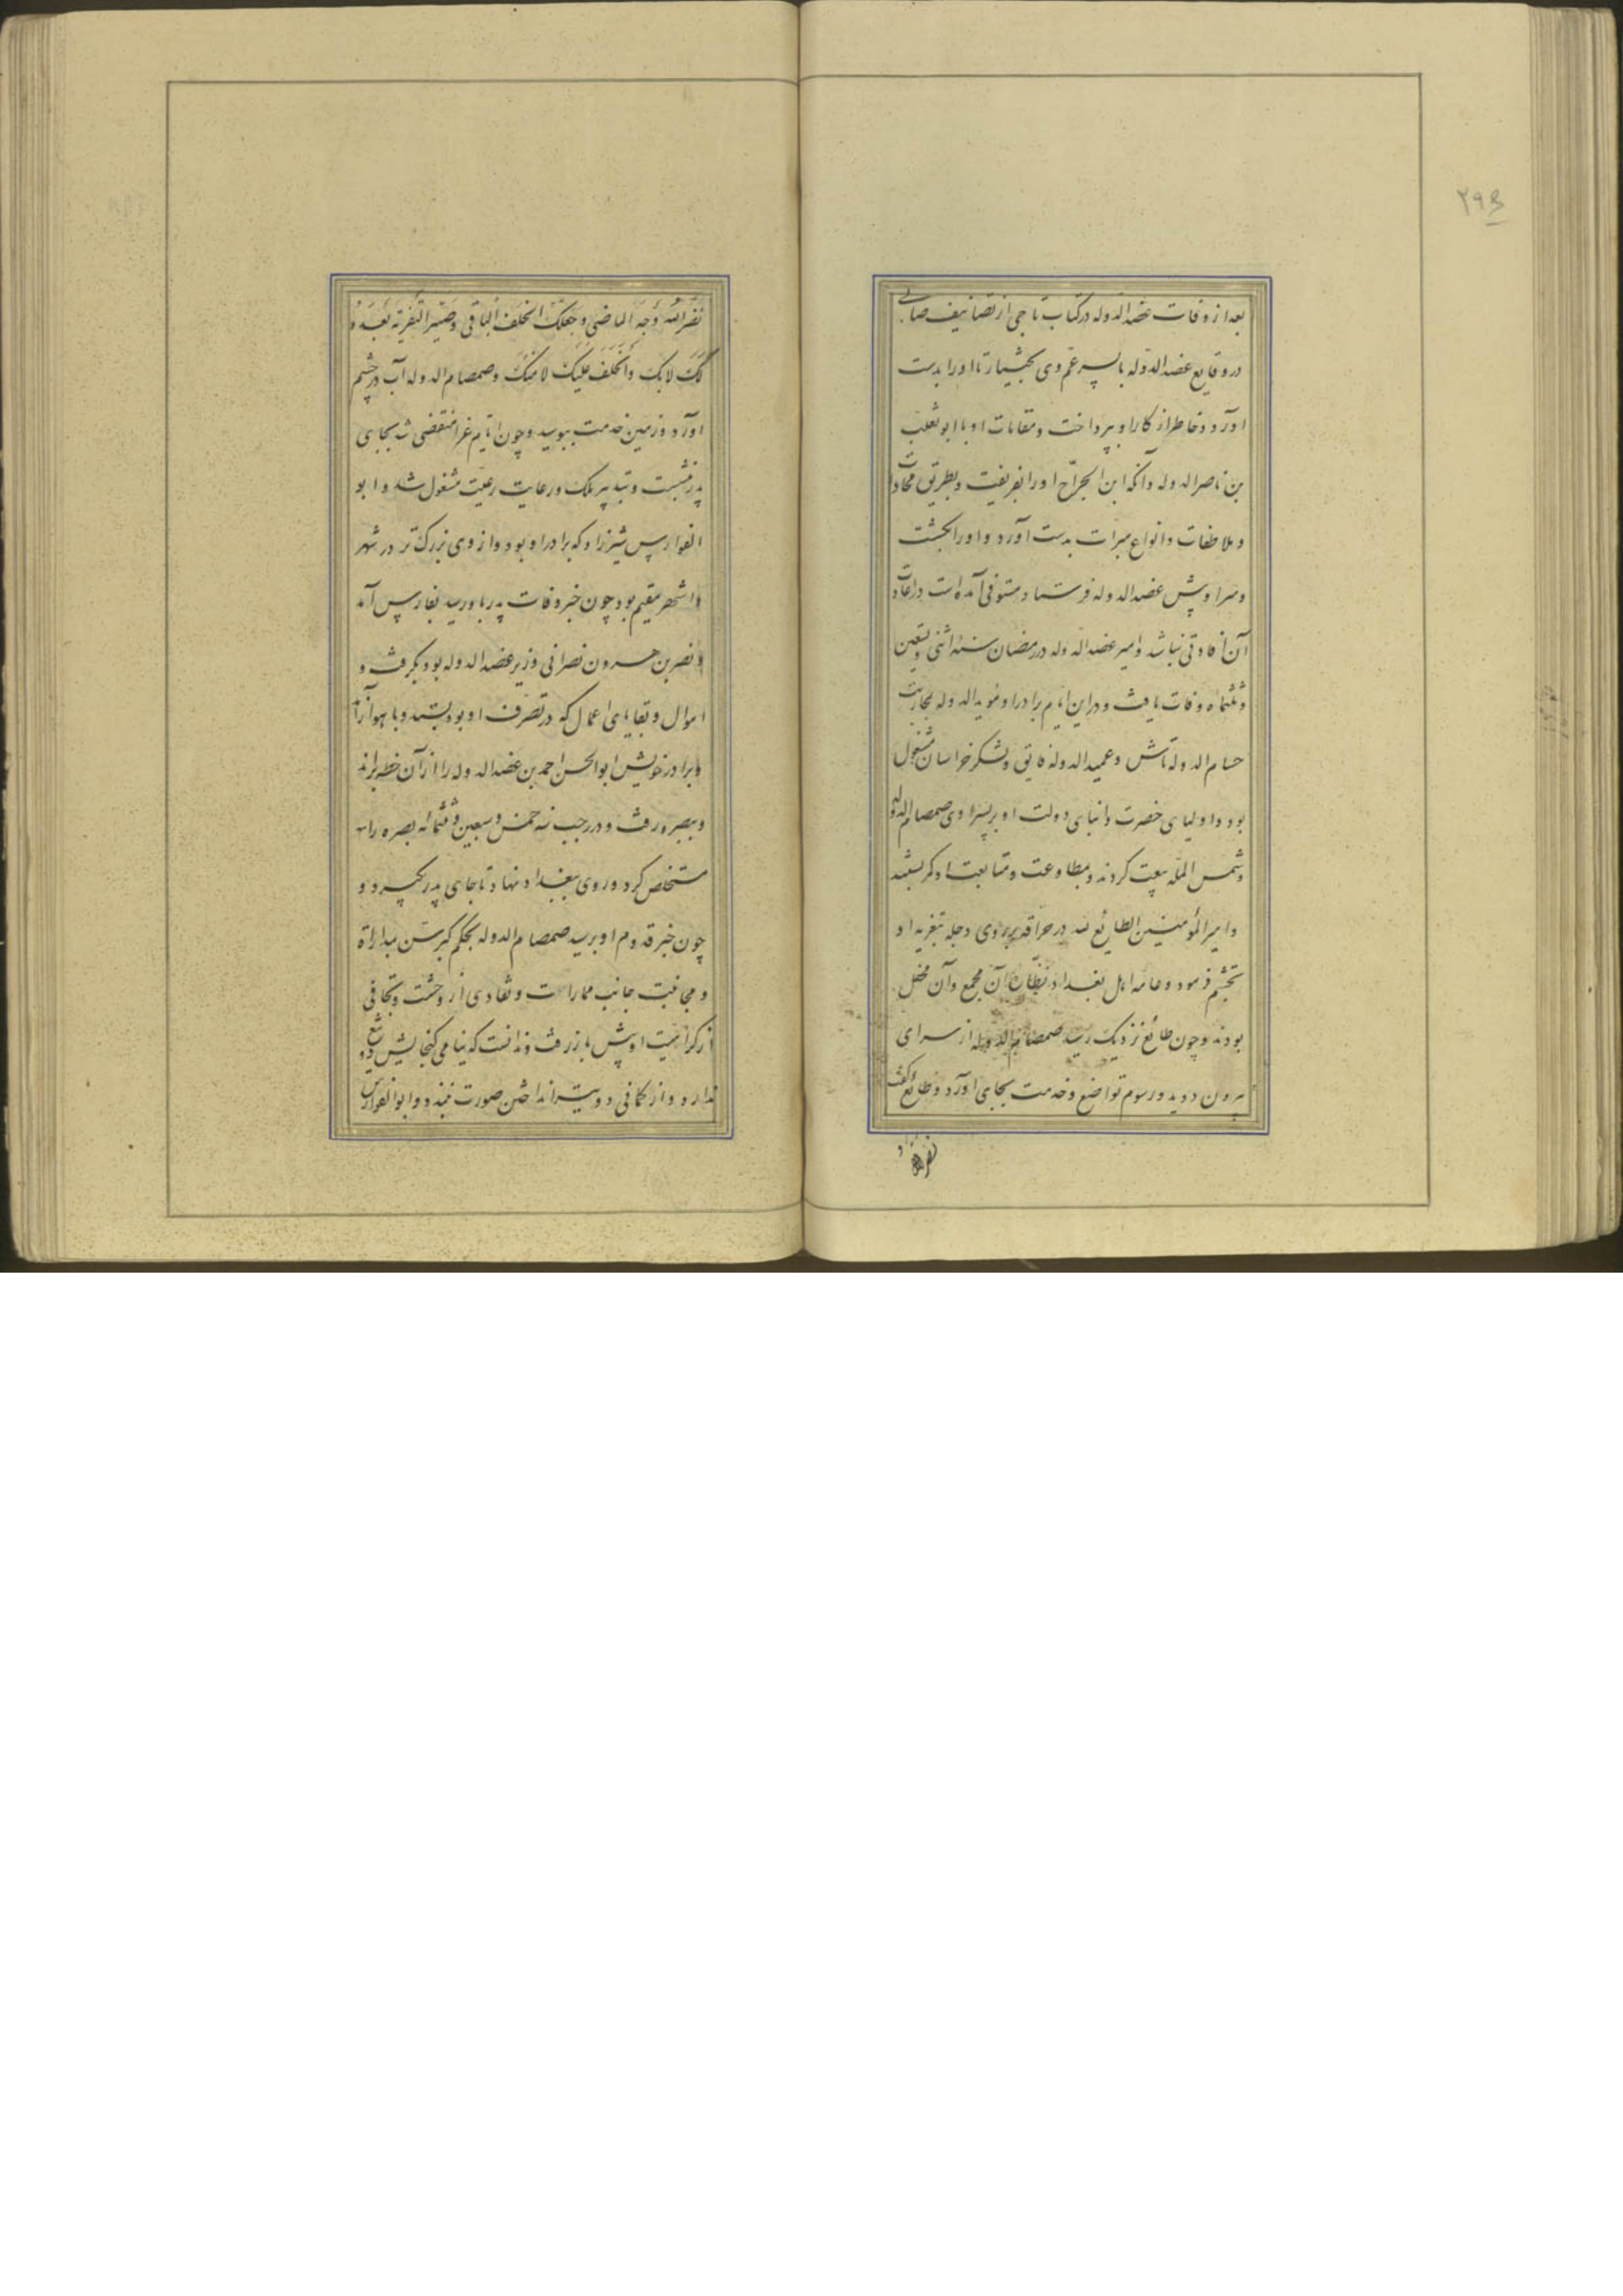 ۲۹۵
بعد از وفات عضد الدوله در کتاب تاجی از تصانیف صابی
در وقایع عضد الدوله با پسر عم وی بختیار تا او را بدست
آورد و خاطر از کار او بپرداخت و مقامات او با ابو تغلب
بن ناصر الدوله و آنکه ابن الجراح او را بفریفت و بطریق محادثت
و ملاطفات و انواع مبرات بدست آورد و او را بکشت
و سر او پیش عضد الدوله فرستاد مستوفی آمده است در اعادت
آن افادتی نباشد و امیر عضد الدوله در رمضان سنه اثنی و سبعین
و ثلثمائه وفات یافت و در این ایام برادر او مؤید الدوله بمحاربت
حسام الدوله تاش و عمید الدوله فایق و لشکر خراسان مشغول
بود و اولیای حضرت و انبای دولت او بر پسر او صمصام الدوله
و شمس المله بیعت کردند و بمطاوعت و متابعت او کمر بستند
و امیر المؤمنین الطائع لله در حراقه بر روی دجله بتعزیه او
تجشم فرمود و عامه اهل بغداد نظاره آن مجمع و آن محفل
بودند و چون طائع نزدیک رسید صمصام الدوله از سرای
بیرون دوید و رسوم تواضع و خدمت بجای آورد و طائع گفت
نضر الله
نضر الله وجه الماضی و جعلک الخلف الباقی و صیر التعزیة بعده
لک لا بک و الخلف علیک لا منک و صمصام الدوله آب در چشم
آورد و زمین خدمت ببوسید و چون ایام عزا منقضی شد بجای
پدر نشست و بتدبیر ملک و رعایت رعیت مشغول شد و ابو
الفوارس شیرزاد که برادر او بود و از وی بزرگ تر در شهر
و اشهر مقیم بود چون خبر وفات پدر باو رسید بفارس آمد
و نصر بن هرون نصرانی وزیر عضد الدوله بود بگرفت و
اموال و بقایای اعمال که در تصرف او بود بستد و باهواز آمد
و برادر خویش ابو الحسن احمد بن عضد الدوله را از آن خطه براند
و ببصره رفت و در رجب سنه خمس و سبعین و ثلثمائه بصره را
مستخلص کرد و روی ببغداد نهاد تا جای پدر بگیرد و
چون خبر قدوم او برسید صمصام الدوله بحکم کبر سن بمداراة
و مجانبت جانب ممارات و تفادی از وحشت و تجافی
از کراهیت او پیش باز رفت و ندانست که نیامی گنجایش دو تیغ
ندارد و از کمانی دو تیر انداختن صورت نبندد و ابو الفوارس